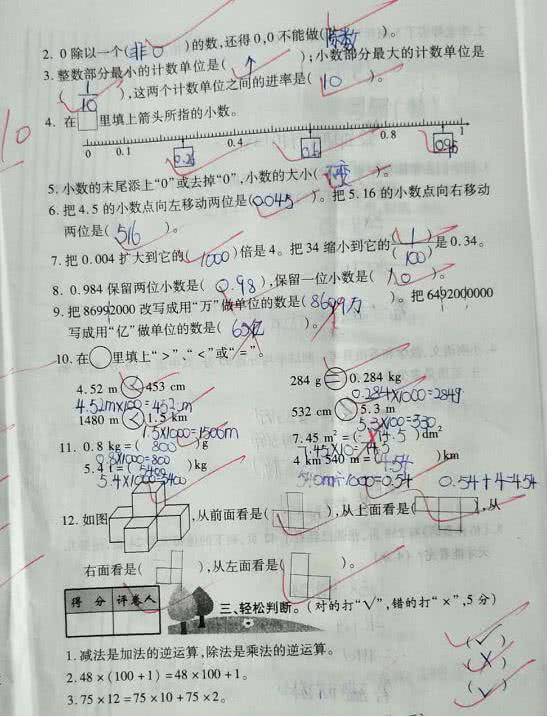 2. 0除以一个(非0)的数,还得0,0不能做(除数)。
3. 整数部分最小的计数单位是(个);小数部分最大的计数单位是
(1/10),这两个计数单位之间的进率是(10)。
4. 在□里填上箭头所指的小数。
0 0.1 0.4 0.6 0.8 1
5. 小数的末尾添上“0”或去掉“0”,小数的大小(不变)。
6. 把4.5的小数点向左移动两位是(0.045)。把5.16的小数点向右移动
两位是(516)。
7. 把0.004扩大到它的(1000)倍是4。把34缩小到它的(1/100)是0.34。
8. 0.984保留两位小数是(0.98),保留一位小数是(1.0)。
9. 把86992000改写成用“万”做单位的数是(8699万)。把6492000000
写成用“亿”做单位的数是(65亿)。
10. 在○里填上“>”、“<”或“=”。
4.52 m < 453 cm 284 g = 0.284 kg
4.52m×100=452cm 0.284×1000=284g
1480 m < 1.5 km 532 cm > 5.3 m
1.5×1000=1500m 5.3×100=530
11. 0.8 kg=(800)g 7.45 m²=(74.5)dm²
0.8×1000=800 7.45×10=74.5
5.4 t=(5400)kg 4 km 540 m=(4.54)km
5.4×1000=5400 540m÷1000=0.54 0.54+4=4.54
12. 如图,从前面看是( ),从上面看是( ),从
右面看是( ),从左面看是( )。
得分 评卷人
三、轻松判断。(对的打“√”,错的打“×”,5分)
1. 减法是加法的逆运算,除法是乘法的逆运算。(√)
2. 48×(100+1)=48×100+1。(×)
3. 75×12=75×10+75×2。(√)